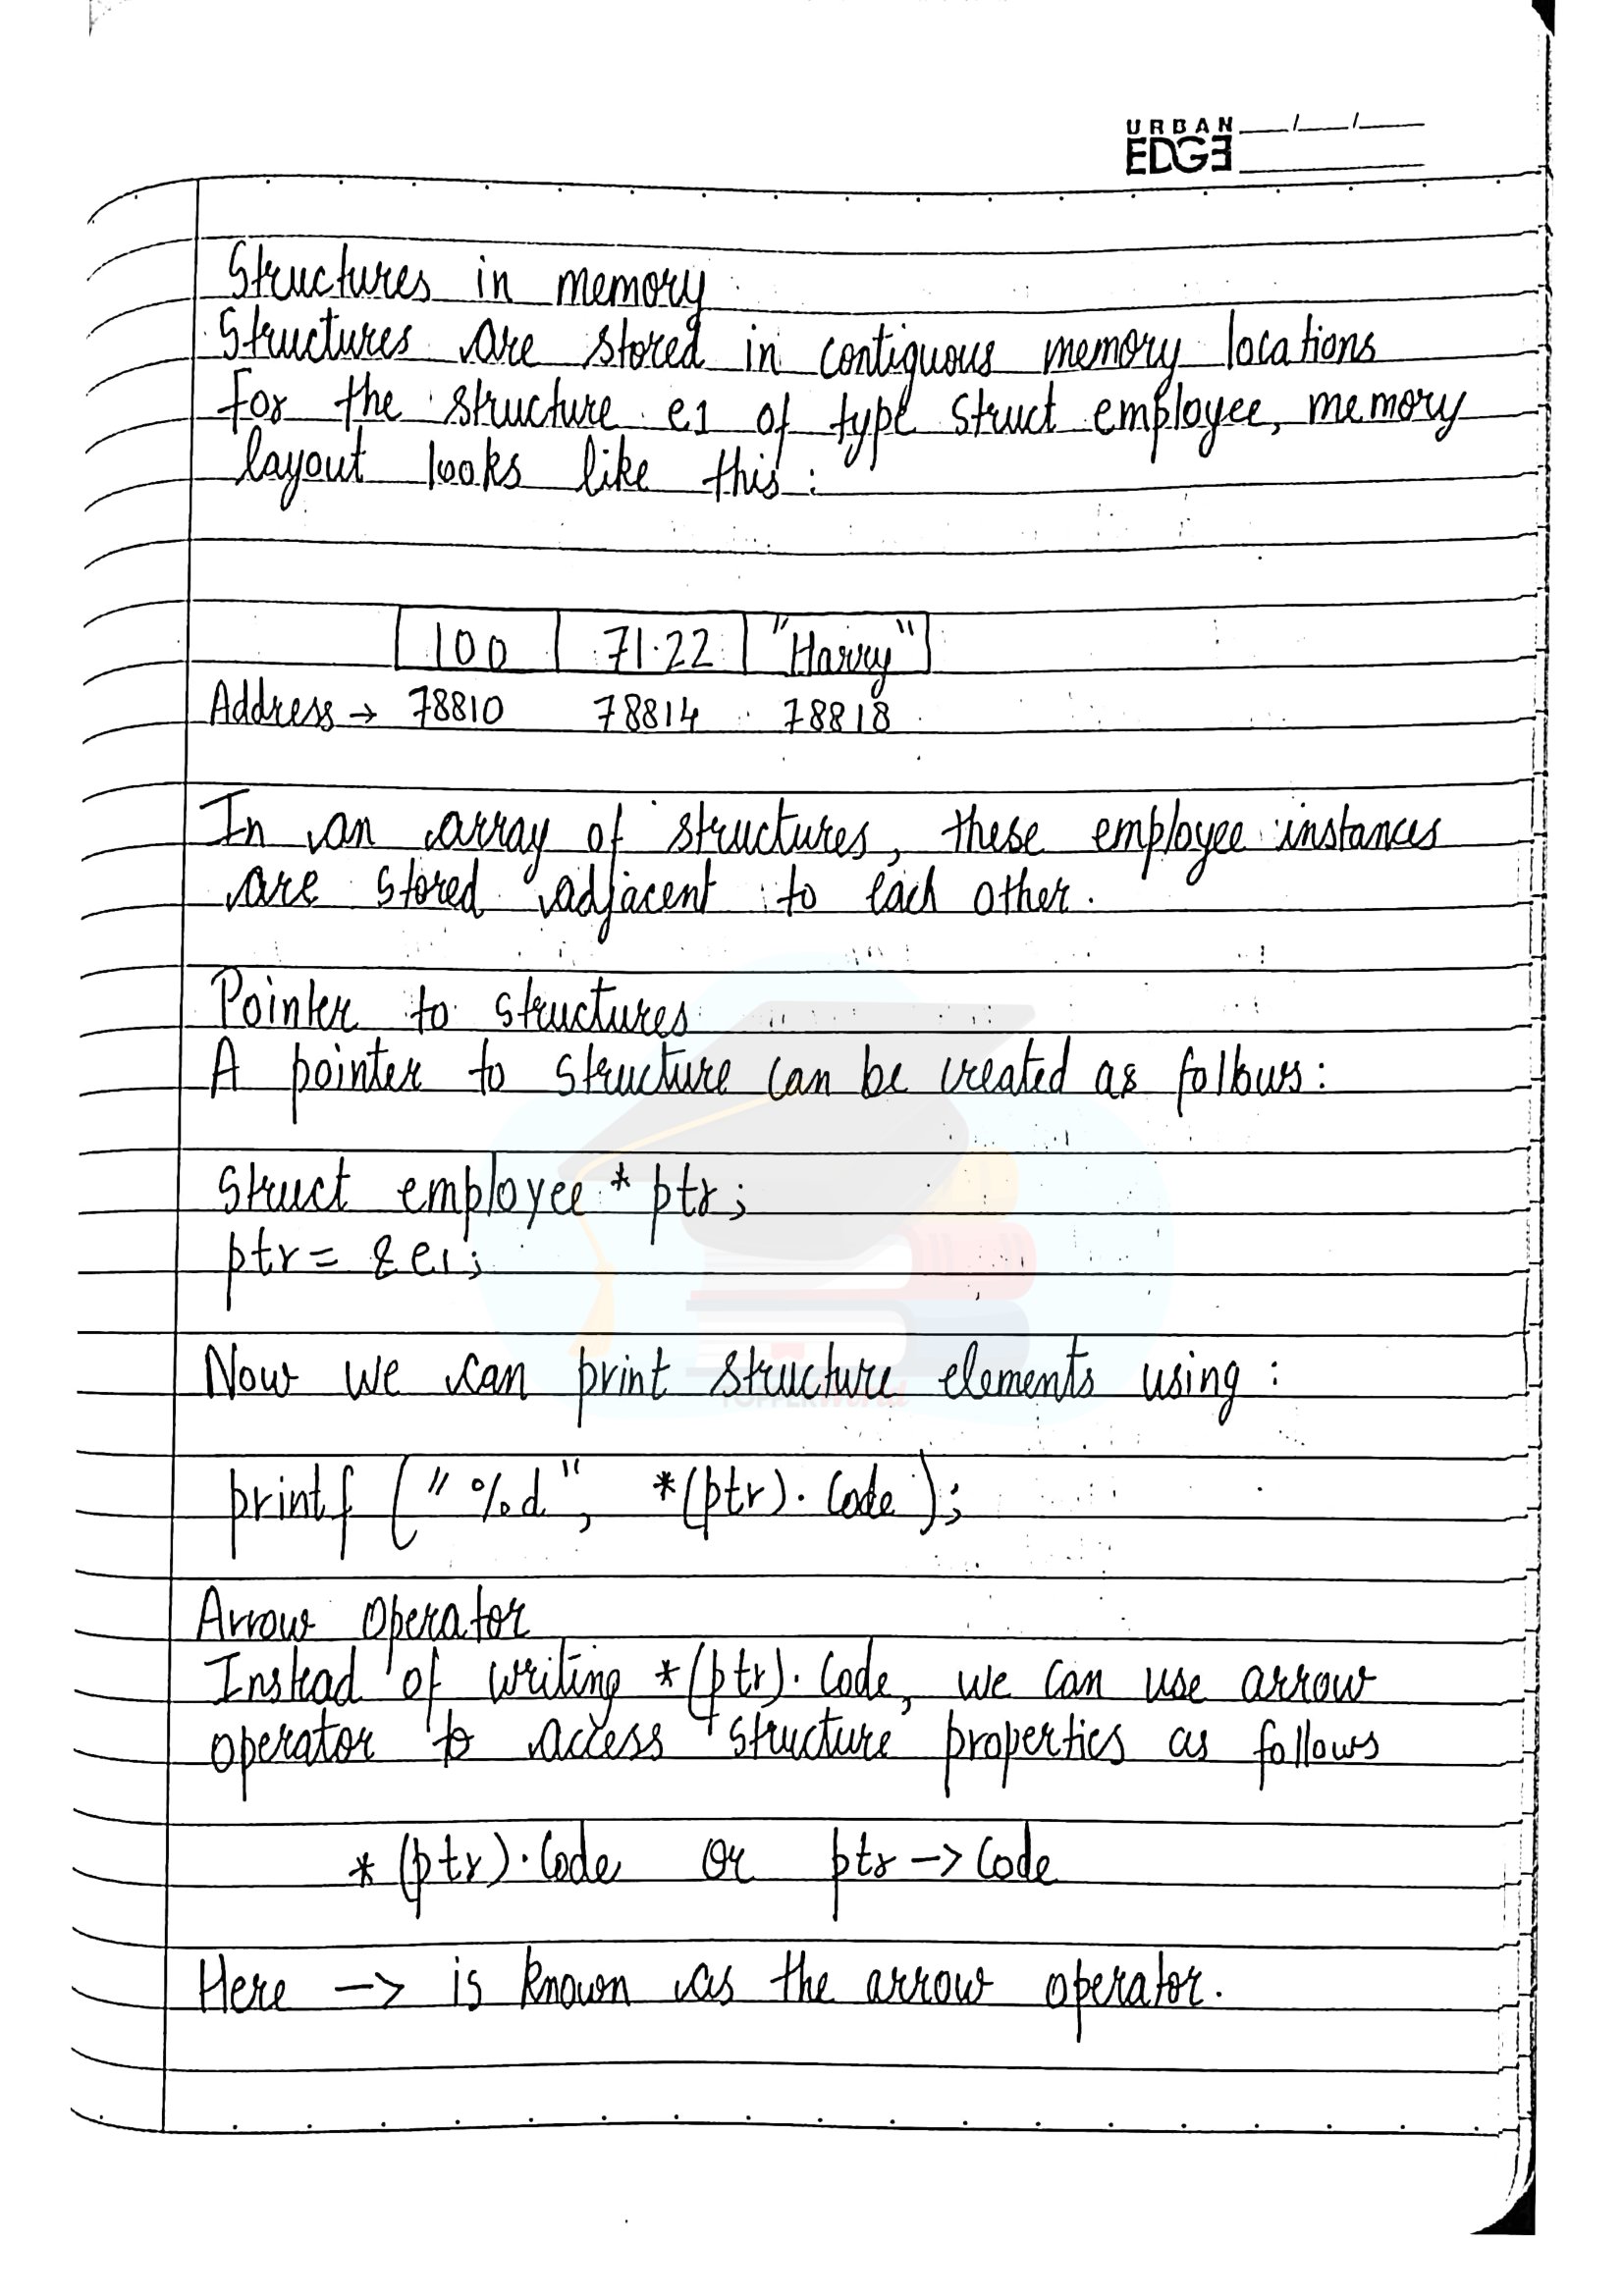 URBAN
EDGE
Structures in memory
Structures are stored in contiguous memory locations
For the structure e1 of type struct employee, memory
layout looks like this:
100 71.22 "Harry"
Address → 78810 78814 78818
In an array of structures, these employee instances
are stored adjacent to each other.
Pointer to structures
A pointer to structure can be created as follows:
Struct employee * ptr;
ptr = &e1;
Now we can print structure elements using:
TOPPERWorld
printf ("%d", *(ptr).Code);
Arrow Operator
Instead of writing *(ptr).Code, we can use arrow
operator to access structure properties as follows
*(ptr).Code or ptr -> Code
Here -> is known as the arrow operator.